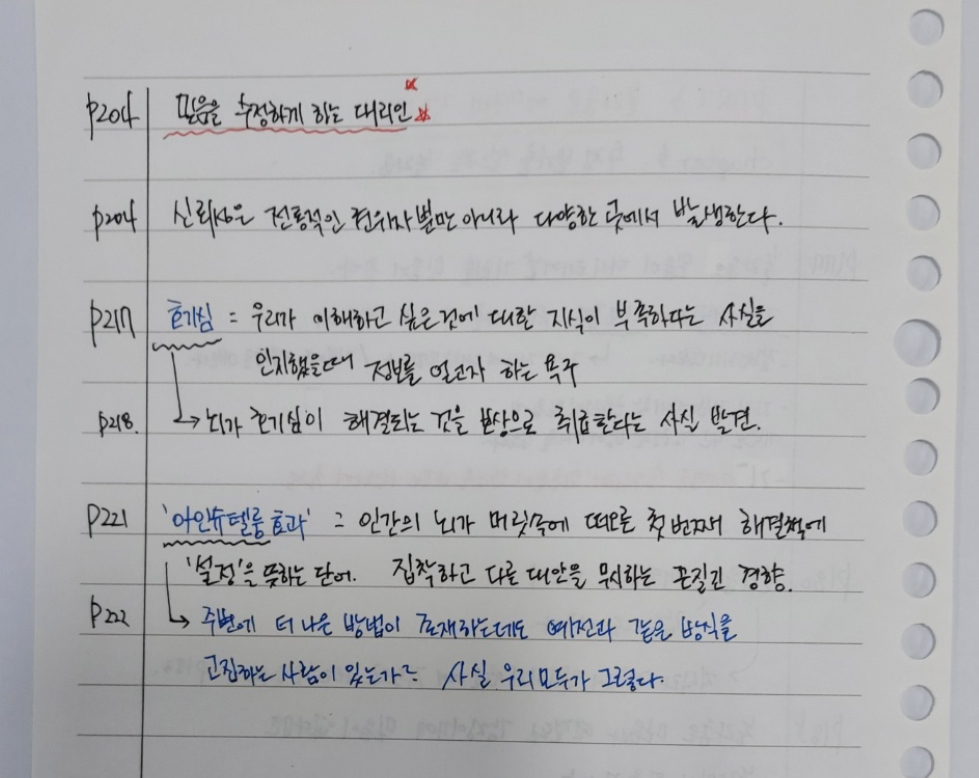 p204 믿음을 수정하게 하는 대리인
p204 신뢰성은 전통적인 권위자 뿐만 아니라 다양한 곳에서 발생한다.
p217 호기심 = 우리가 이해하고 싶은 것에 대한 지식이 부족하다는 사실을
인지했을때 정보를 얻고자 하는 욕구
p218. → 뇌가 호기심이 해결되는 것을 보상으로 취급한다는 사실 발견.
p221 '아인슈텔룽 효과' = 인간의 뇌가 머릿속에 떠오른 첫 번째 해결책에
'설정'을 뜻하는 단어. 집착하고 다른 대안을 무시하는 끈질긴 경향.
p222 → 주변에 더 나은 방법이 존재하는데도 예전과 같은 방식을
고집하는 사람이 있는가? 사실 우리 모두가 그렇다.